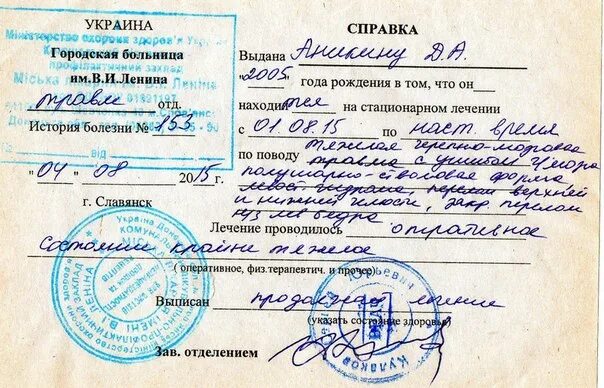 УКРАИНА
Міністерство охорони здоров'я України
Городская больница
профілактичний заклад
им.В.И.Ленина
Міська лікарня ім. В.І. Леніна
травм отд.
История болезни № 153
від
"04" 08 2015 г.
г. Славянск
СПРАВКА
Выдана Аникину Д.А.
"2005" года рождения в том, что он
находится на стационарном лечении
с 01.08.15 по наст. время
по поводу тяжелая черепно-мозговая
травма с ушибом г/мозга
полушарно-стволовая форма
перелом верхней
и нижней челюсти, закр. перелом
н/3 лев бедра
Лечение проводилось оперативное
Состояние крайне тяжелое
( оперативное, физ.терапевтич. и прочее)
Выписан продолжает лечение
(указать состояние здоровья)
Зав. отделением
Кулаков Юрьевич